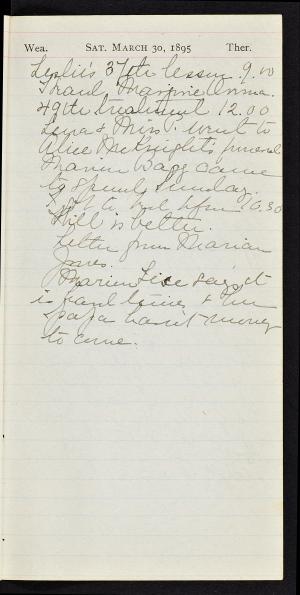 Wea. SAT. MARCH 30, 1895 Ther.
Leslie's 37th lesson. 9.00
Maud, Marjorie Anna.
49th treatment 12.00
Lena & Miss went to
Alice McKnight's funeral
Marion Bagg came
to spend Sunday.
to bed before 10.30
Will is better.
Letter from Marian
Jones.
Marian says it
is hard times & her
papa hasn't money
to come.